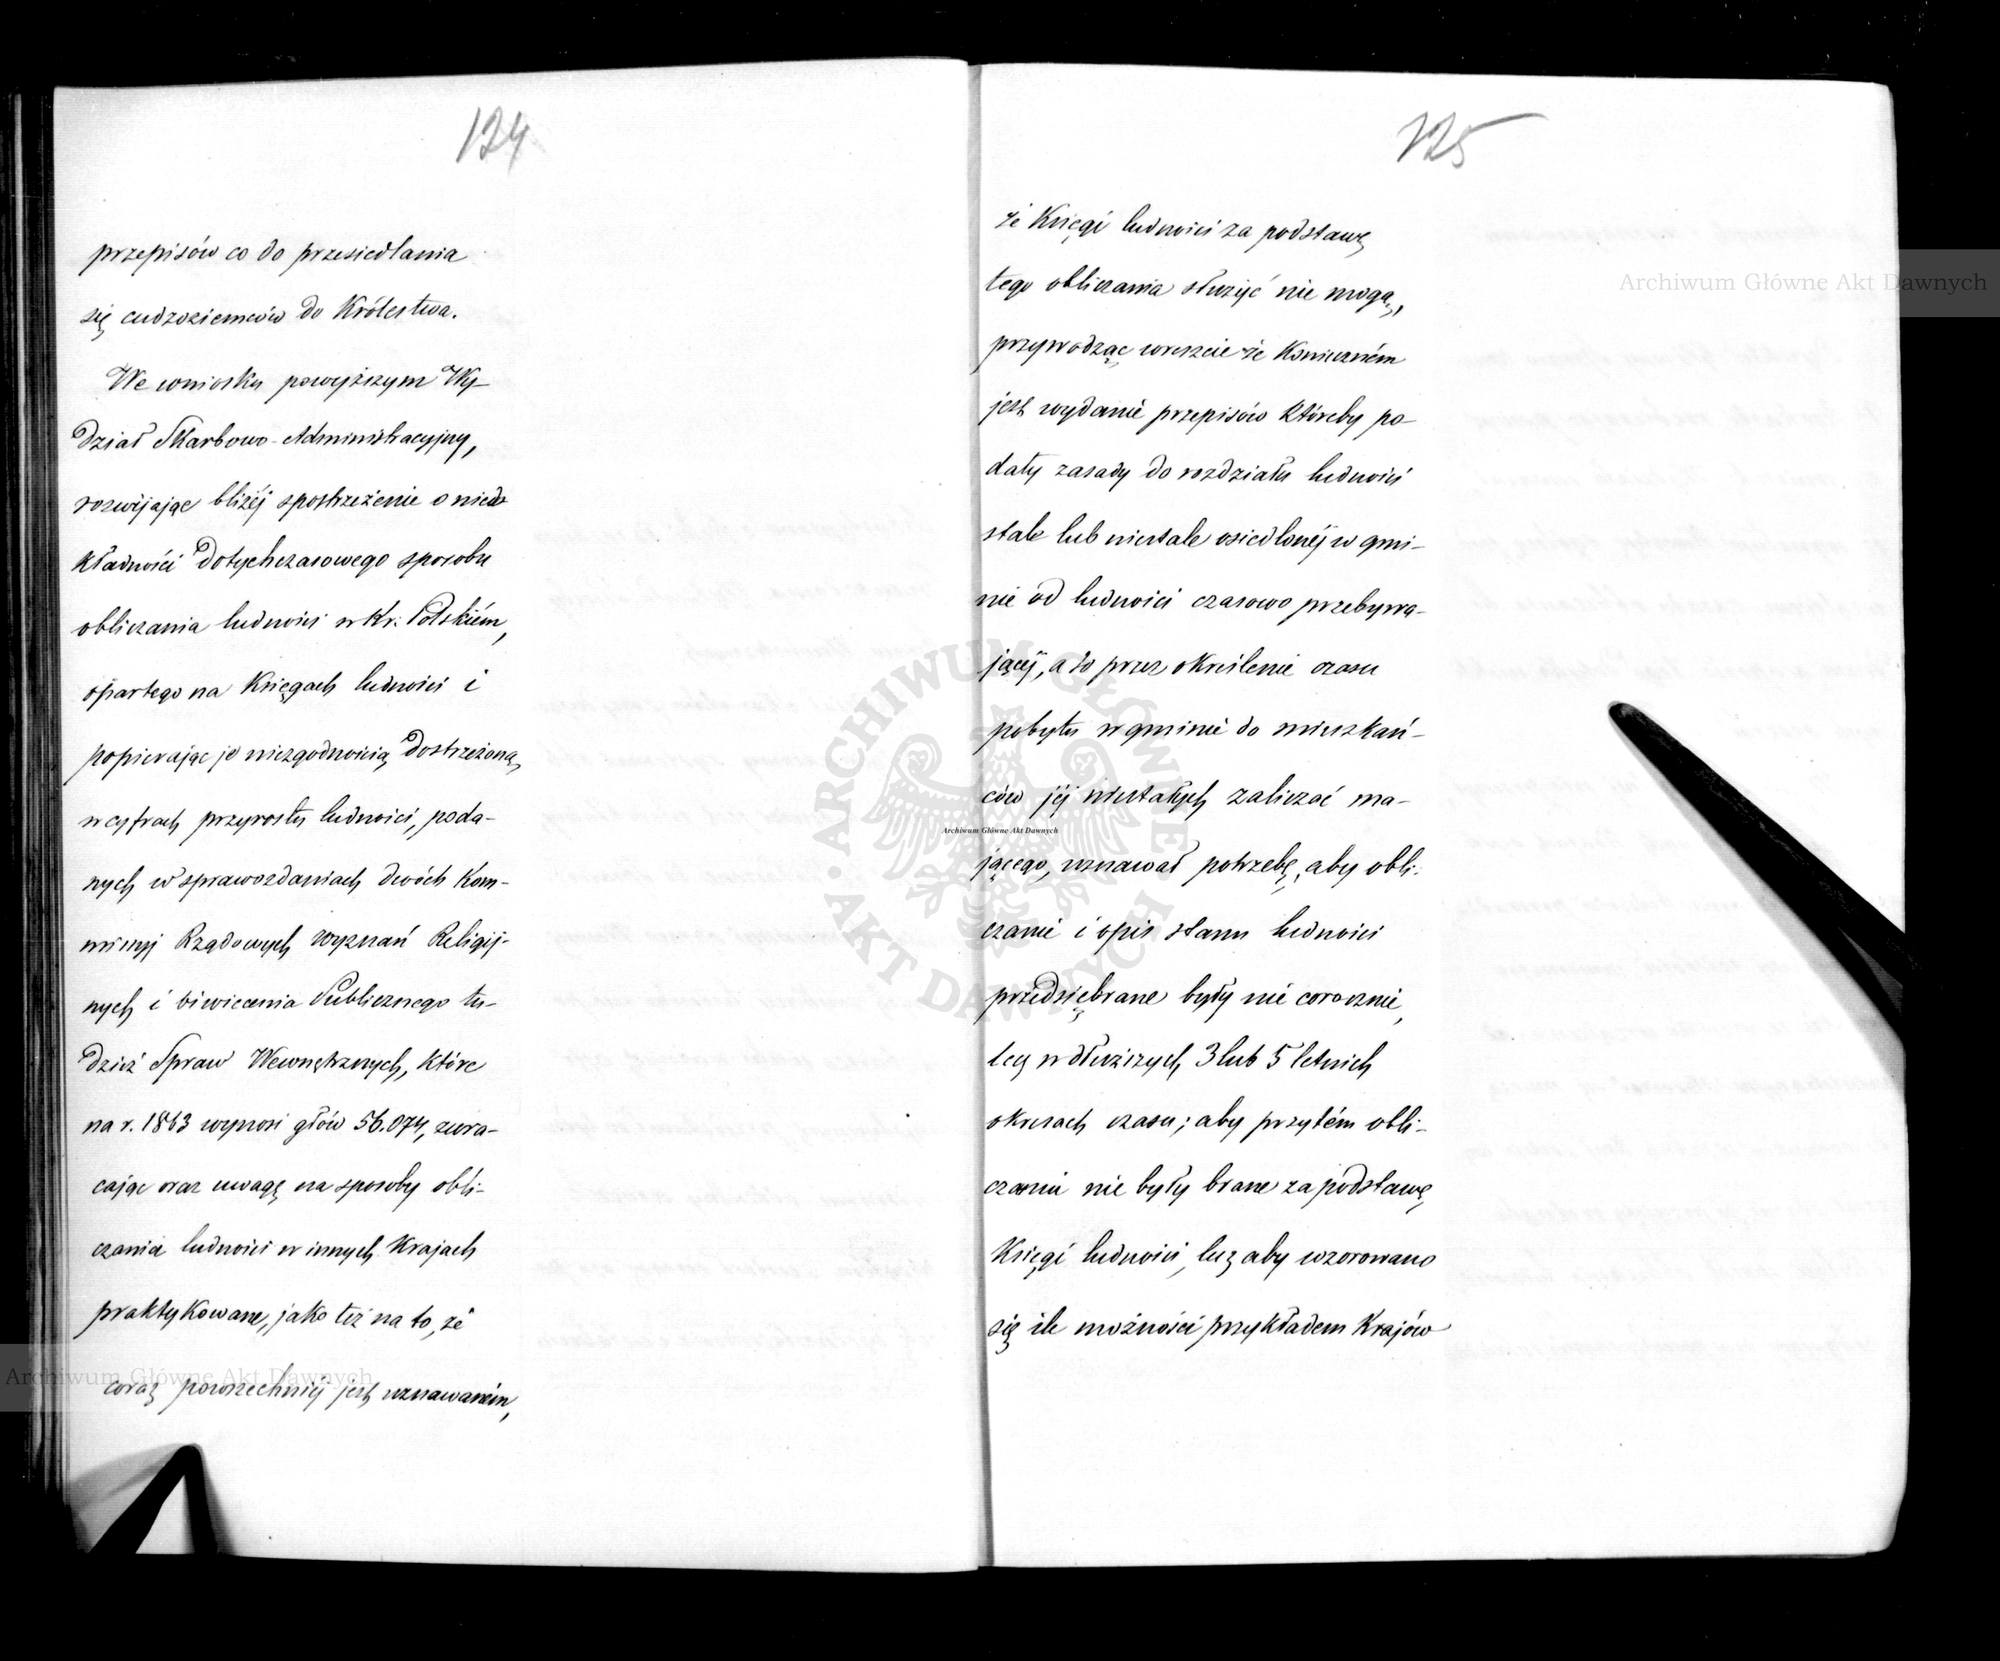 124
przepisów co do przesiedlania
się cudzoziemców do Królestwa.
We wniosku powyższym Wy-
dział Skarbowo-Administracyjny,
rozwijając bliżéj spostrzeżenie o niedo
kładności dotychczasowego sposobu
obliczania ludności w Kr: Polskiém,
opartego na Księgach ludności i
popierając je niezgodnością dostrzeżoną
w cyfrach przyrostu ludności, poda-
nych w sprawozdaniach dwóch Kom-
missyj Rządowych Wyznań Religij-
nych i Oświecenia Publicznego tu-
dzież Spraw Wewnętrznych, które
na r. 1863 wynosi głów 56.074, zwra-
cając oraz uwagę na sposoby obli-
czania ludności w innych Krajach
praktykowane, jako też na to, że
coraz powszechniéj jest uznawaném,
125
że Księgi ludności za podstawę
tego obliczania służyć nie mogą,
przywodząc wreszcie że Konieczném
jest wydanie przepisów któreby po-
dały zasady do rozdziału ludności
stale lub niestale osiedlonéj w gmi-
nie od ludności czasowo przebywa-
jącéj, a to przez określenie czasu
pobytu w gminie do mieszkań-
ców jéj niestałych zaliczać ma-
jącego, uznawał potrzebę, aby obli-
czanie i opis stanu ludności
przedsiębrane były nie corocznie,
lecz w dłuższych, 3 lub 5 letnich
okresach czasu; aby przytém obli-
czaniu nie były brane za podstawę
Księgi ludności, lecz aby wzorowano
się ile możności przykładem Krajów
Archiwum Główne Akt Dawnych
ARCHIWUM GŁÓWNE AKT DAWNYCH
Archiwum Główne Akt Dawnych
Archiwum Główne Akt Dawnych